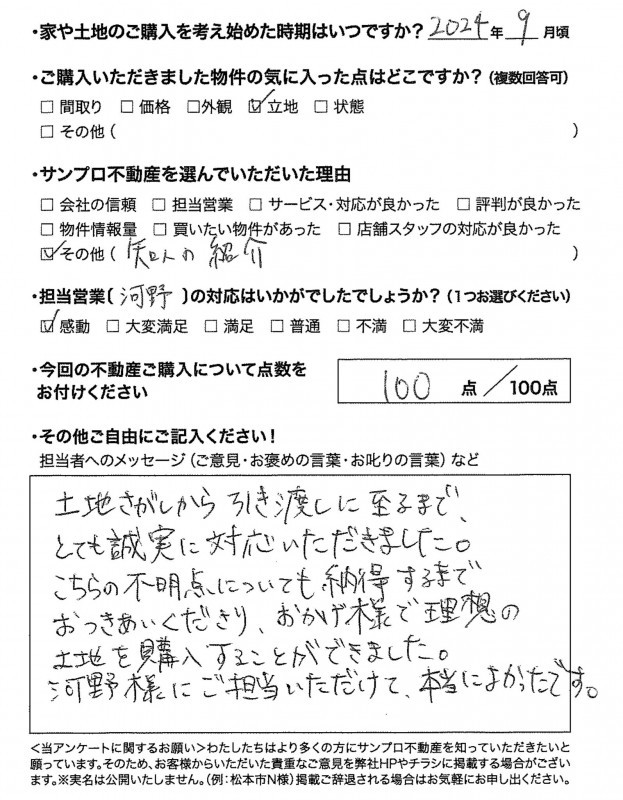 ・家や土地のご購入を考え始めた時期はいつですか？ 2024年 9月頃
・ご購入いただきました物件の気に入った点はどこですか？（複数回答可）
□ 間取り □ 価格 □外観 ☑ 立地 □ 状態
□ その他（ ）
・サンプロ不動産を選んでいただいた理由
□ 会社の信頼 □ 担当営業 □ サービス・対応が良かった □ 評判が良かった
□ 物件情報量 □ 買いたい物件があった □ 店舗スタッフの対応が良かった
☑ その他（ 知人の紹介 ）
・担当営業〔 河野 〕の対応はいかがでしたでしょうか？（1つお選びください）
☑ 感動 □ 大変満足 □ 満足 □ 普通 □ 不満 □ 大変不満
・今回の不動産ご購入について点数を
お付けください
100 点／100点
・その他ご自由にご記入ください！
担当者へのメッセージ（ご意見・お褒めの言葉・お叱りの言葉）など
土地さがしから引き渡しに至るまで、
とても誠実に対応いただきました。
こちらの不明点についても納得するまで
おつきあいくださり、おかげ様で理想の
土地を購入することができました。
河野様にご担当いただけて、本当によかったです。
＜当アンケートに関するお願い＞わたしたちはより多くの方にサンプロ不動産を知っていただきたいと
願っています。そのため、お客様からいただいた貴重なご意見を弊社HPやチラシに掲載する場合がござい
ます。※実名は公開いたしません。（例：松本市N様）掲載ご辞退される場合はお気軽にお申し出ください。